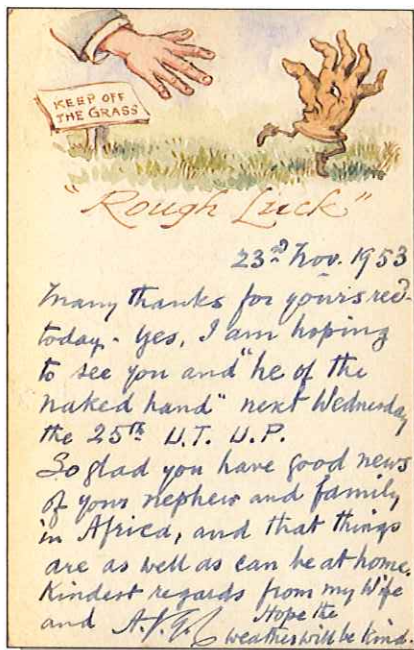 KEEP OFF
THE GRASS
"Rough Luck"
23rd Nov. 1953
Many thanks for yours recd.
today. Yes, I am hoping
to see you and "he of the
naked hand" next Wednesday
the 25th D.T. D.P.
So glad you have good news
of your nephew and family
in Africa, and that things
are as well as can be at home.
Kindest regards from my Wife
and
Hope the
weather will be kind.